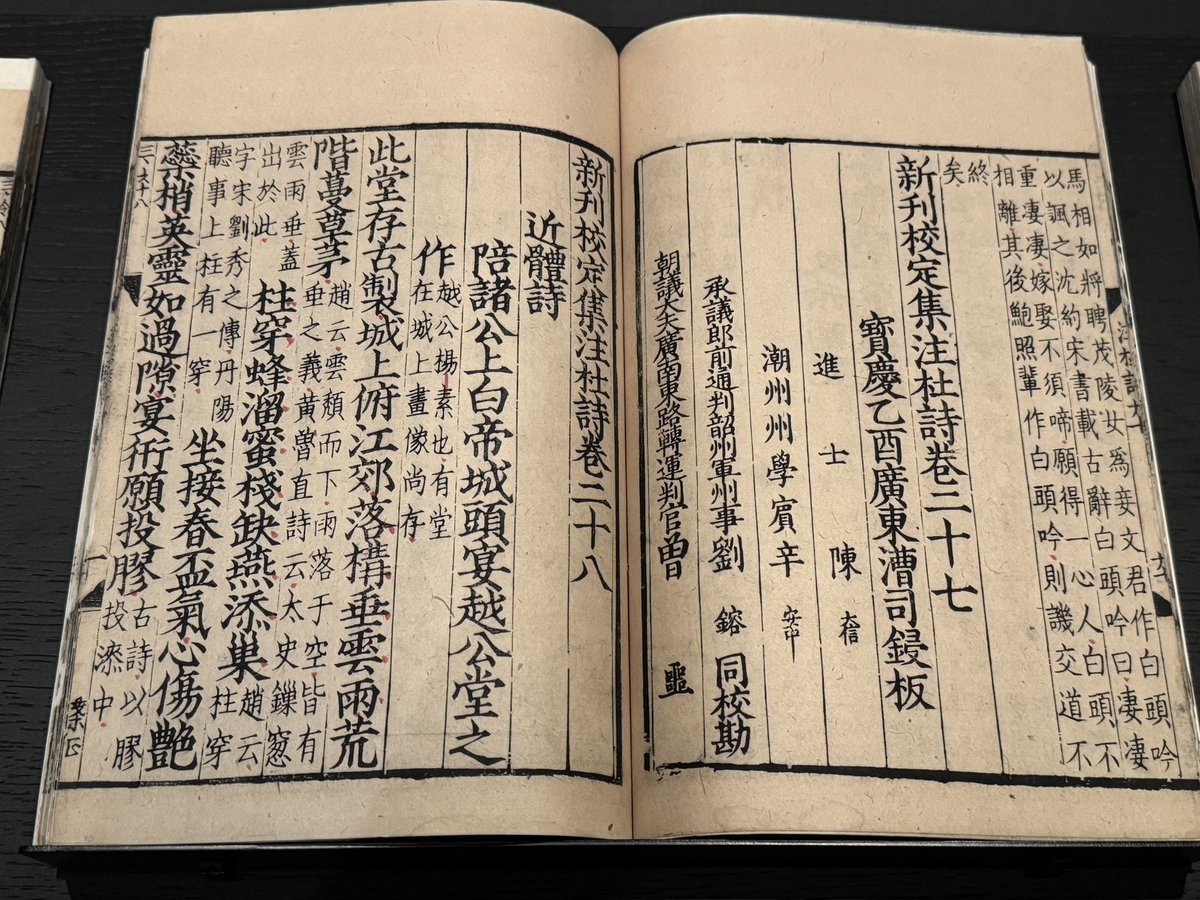 馬相如將聘茂陵女爲妾文君作白頭吟
以諷之沈約宋書載古辭白頭吟曰凄凄
重凄凄嫁娶不須啼願得一心人白頭不
相離其後鮑照輩作白頭吟則譏交道不
終
矣
新刊校定集注杜詩卷二十七
寶慶乙酉廣東漕司鋟板
進士陳大信
潮州州學賓辛安中
承議郎前通判韶州軍州事劉鎔同校勘
朝議大夫廣南東路轉運判官曾噩
新刊校定集注杜詩卷二十八
近體詩
陪諸公上白帝城頭宴越公堂之
作越公楊素也有堂
在城上畫像尚存
此堂存古製城上俯江郊落構垂雲雨荒
階蔓草茅趙云雲頹而下雨落于空皆有
垂之義黃魯直詩云太史鏁窻
雲雨垂蓋
出於此
柱穿蜂溜蜜棧缺燕添巢趙云
柱穿
字宋劉秀之傳丹陽
聽事上柱有一穿
坐接春盃氣心傷艷
蘂梢英靈如過隙宴衎願投膠古詩以膠
投漆中